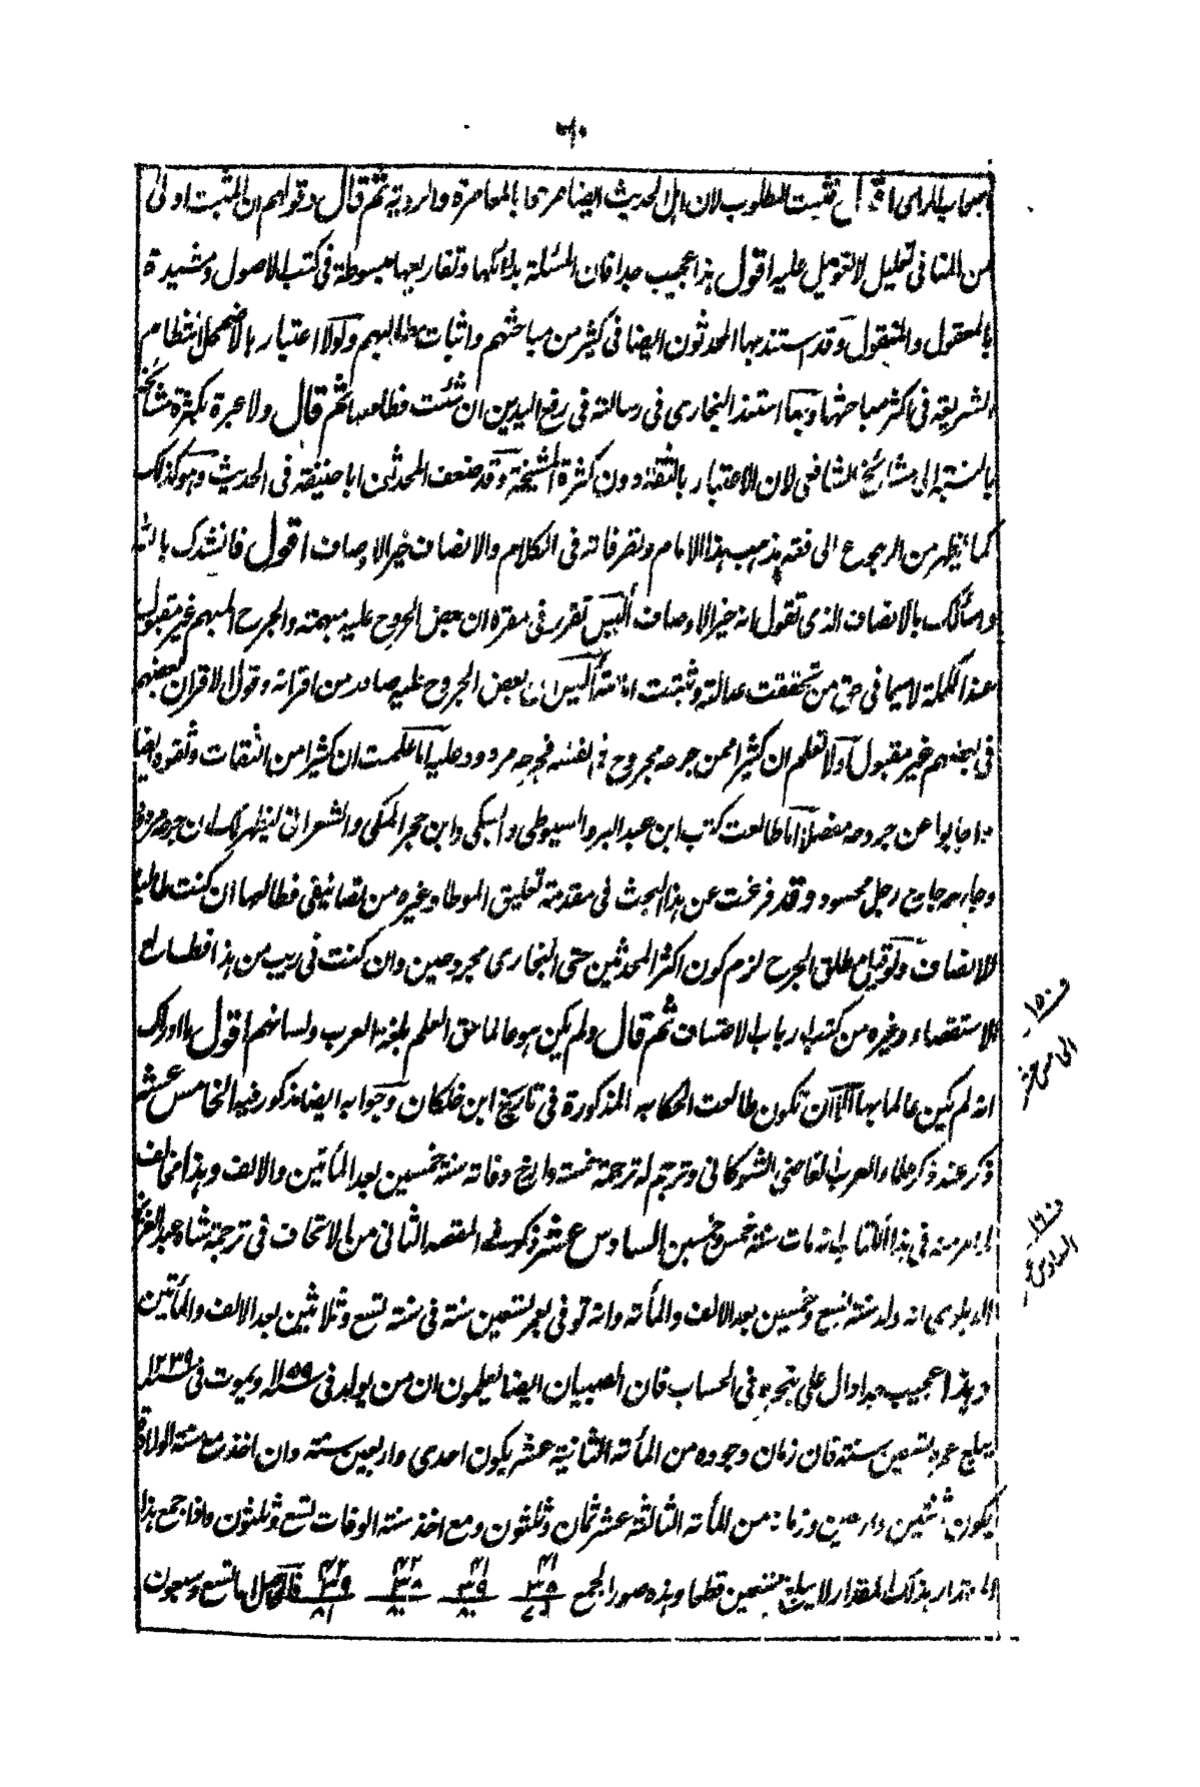 اصحاب الراى ا
ثبت المطلوب لان اهل الحديث ايضا صرحا بالمعاصرة والروية ثم قال وقولهم ان المثبت اولى
من النافى تعليل لا تعويل عليه اقول هذا عجيب جدا فان المسئلة بدلائلها وتفاريعها مبسوطة فى كتب الاصول ومشيدة
بالمعقول والمنقول وقد استند بها المحدثون ايضا فى كثير من مباحثهم واثبات مطالبهم ولولا اعتبارها لاضمحل انتظام
الشريعة فى اكثر مباحثها وبها استند البخارى فى رسالته فى رفع اليدين ان شئت فطالعها ثم قال ولا عبرة بكثرة مشائخه
بالنسبة الى مشائخ الشافعى لان الاعتبار بالثقة دون كثرة المشيخة وقد ضعف المحدثين ابا حنيفة فى الحديث وهو كذلك
كما يظهر من الرجوع الى فقه مذهب هذا الامام وتصرفاته فى الكلام والانصاف خير الاوصاف اقول فانشدك بالله
واسألك بالانصاف الذى تقول انه خير الاوصاف أليس تقرر فى مقره ان بعض الجروح عليه مبهمة والجرح المبهم غير مقبول
عند الكملة لا سيما فى حق من تحققت عدالته وثبتت امامته أليس ان بعض الجروح عليه صادر من اقرانه وقول الاقران بعضهم
فى بعضهم غير مقبول أولا تعلم ان كثيرا ممن جرحه مجروح فى نفسه فجرحه مردود عليه أما علمت ان كثيرا من الثقات وثقوه ايضا
واجابوا عن جروحه مفصلا أما طالعت كتب ابن عبد البر والسيوطى والسبكى وابن حجر المكى والشعرانى ليظهر لك ان جرحه مردود
وجارحه جارح رجل محسود وقد فرغت عن هذا البحث فى مقدمة تعليق الموطا وغيره من تصانيفى فطالعها ان كنت طالبا
للانصاف ولو قبل مطلق الجرح لزم كون اكثر المحدثين حتى البخارى مجروحين وان كنت فى ريب من هذا فطالع
الاستقصاء وغيره من كتب ارباب الاعتساف ثم قال ولم يكن هو عالما حق العلم بلغة العرب ولسانهم اقول ما ادراك
انه لم يكن عالما بها الا ان تكون طالعت الحكاية المذكورة فى تاريخ ابن خلكان وجوابه ايضا مذكور فيه الخامس عشر
ذكر عند ذكر علماء العرب القاضى الشوكانى وترجم له ترجمة حسنة وارخ وفاته سنة خمسين بعد المأتين والالف وهذا مخالف
لما مر منه فى هذا الكتاب انه مات سنة خمس وخمسين السادس عشر ذكر فى المقصد الثانى من الاتحاف فى ترجمة شاه عبد العزيز
الدهلوى انه ولد سنة تسع وخمسين بعد الالف والمأته وانه توفى بعمر تسعين سنة فى سنة تسع وثلاثين بعد الالف والمأتين
وهذا عجيب جدا وال على تبحره فى الحساب فان الصبيان ايضا يعلمون ان من يولد فى سنة ١١٥٩ ويموت فى سنة ١٢٣٩
لا يبلغ عمره تسعين سنة فان زمان وجوده من المأته الثانية عشر يكون احدى واربعين سنة وان اخذ مع سنة الولادة
يكون ثنتين واربعين وزمانه من المأته الثالثة عشر ثمان وثلثون ومع اخذ سنة الوفات تسع وثلثون واذا جمع هذا
المقدار بذلك المقدار لا يبلغ تسعين قطعا وهذه صور الجمع ٤١ ٣٨ ٧٩ ٤١ ٣٩ ٨٠ ٤٢ ٣٨ ٨٠ ٤٢ ٣٩ ٨١ فالحاصل اما تسع وسبعون
ف ١٥
الخامس عشر
ف ١٦
السادس عشر